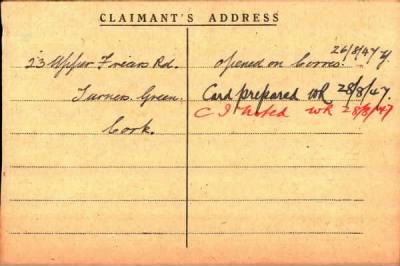 CLAIMANT'S ADDRESS
23 Upper Friars Rd.
Turners Green.
Cork.
opened on Corres. 26/8/47
Card prepared WR 28/8/47.
C I noted WR 28/8/47